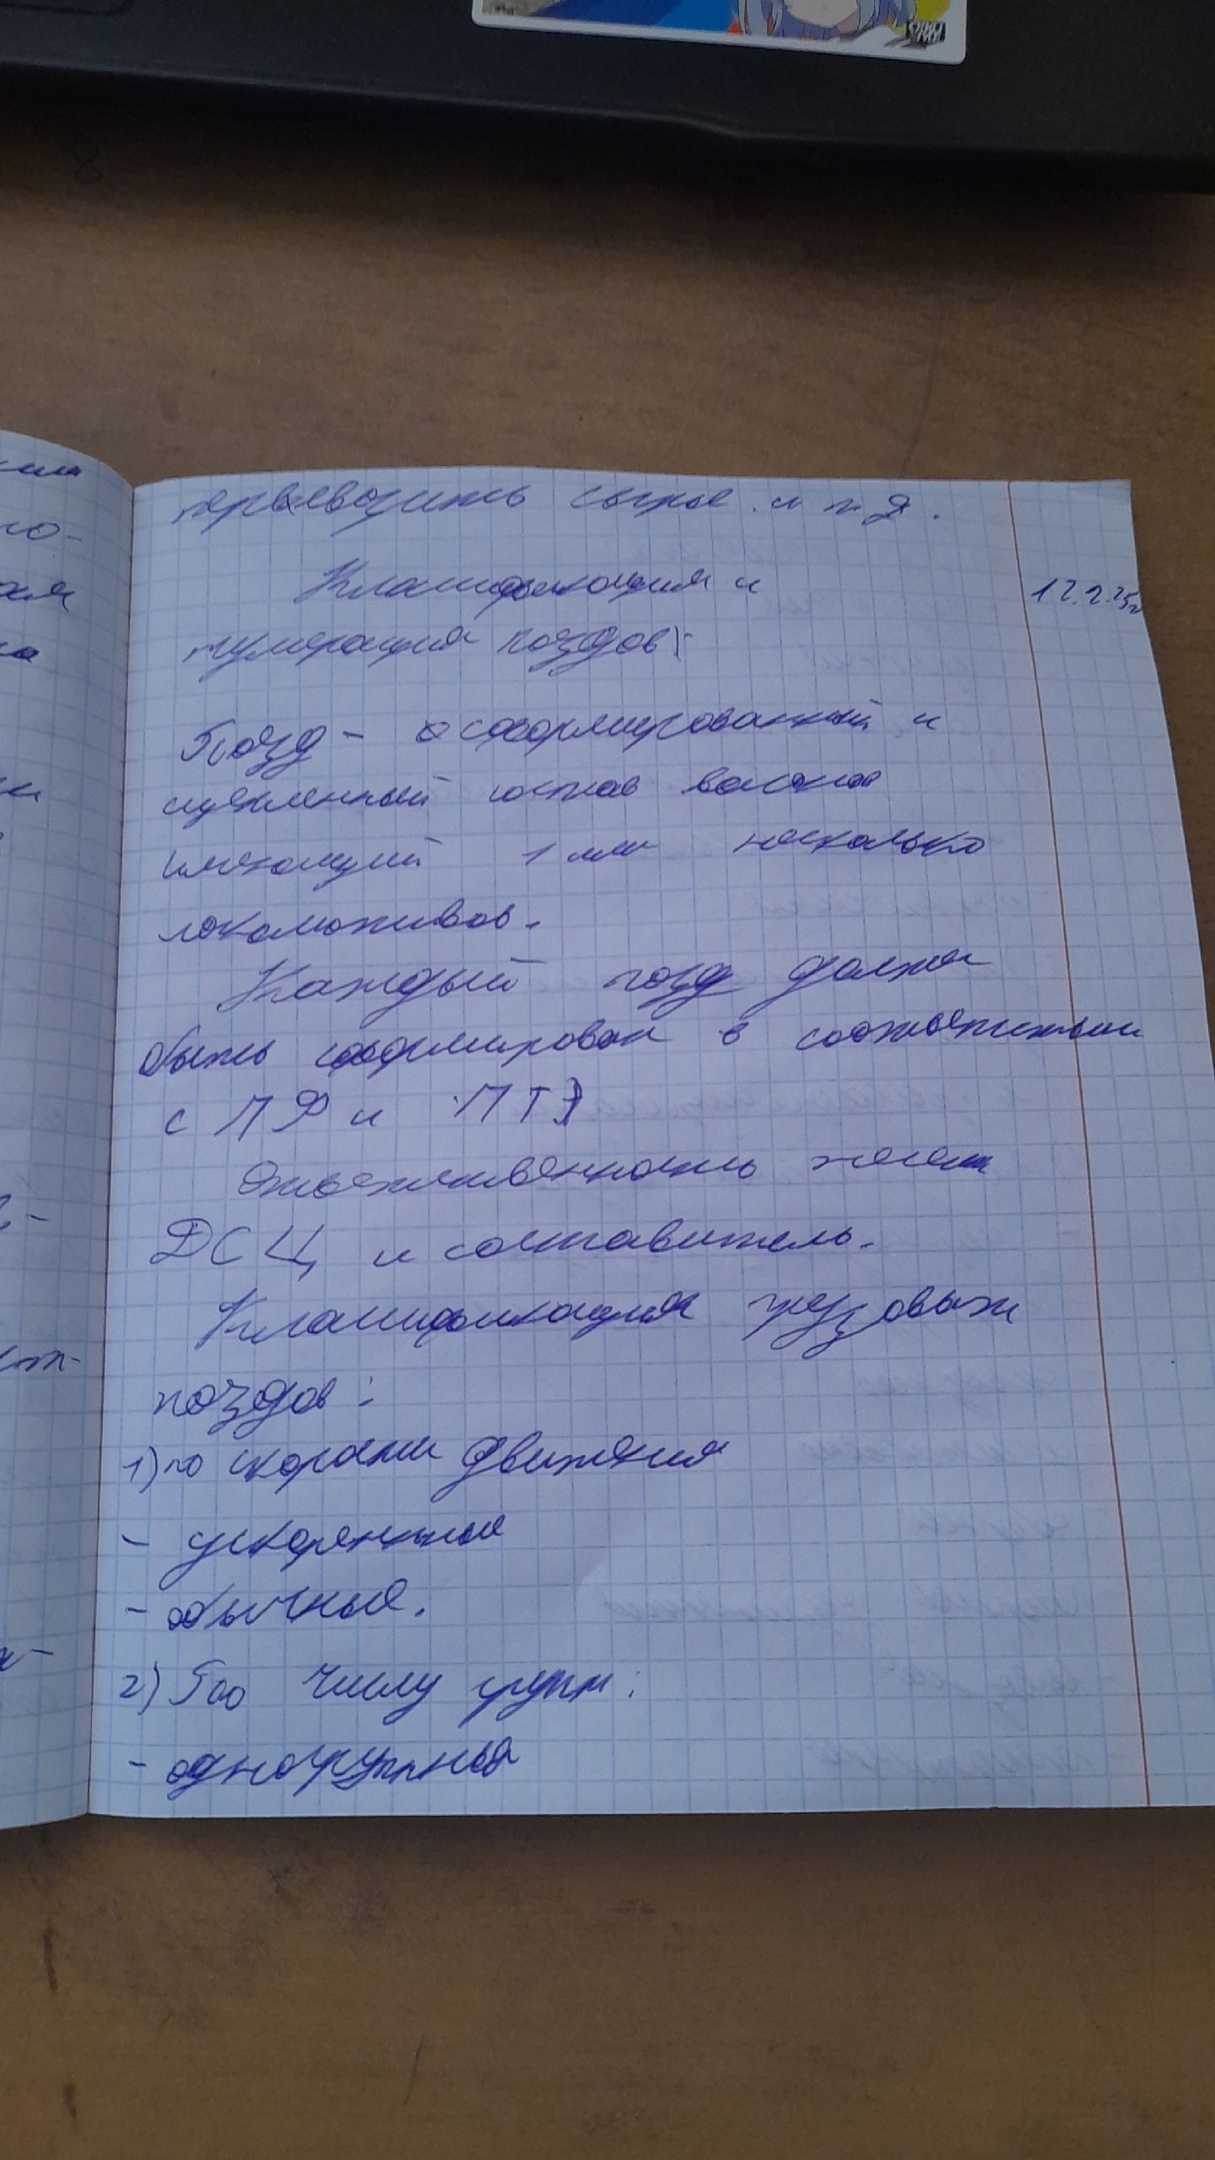 перевозить сырье и т.д.
Классификация и
12.2.25г
нумерация поздов:
Позд - сформированный и
сцепленный состав вагонов
имеющий 1 или несколько
локомотивов.
Каждый позд должен
быть сформирован в соответствии
с ПФ и ПТЭ
Ответственность несет
ДСЦ и составитель.
Классификация грузовых
поздов:
1) по скорости движения
- ускоренные
- обычные.
2) По числу групп:
- одногруппные